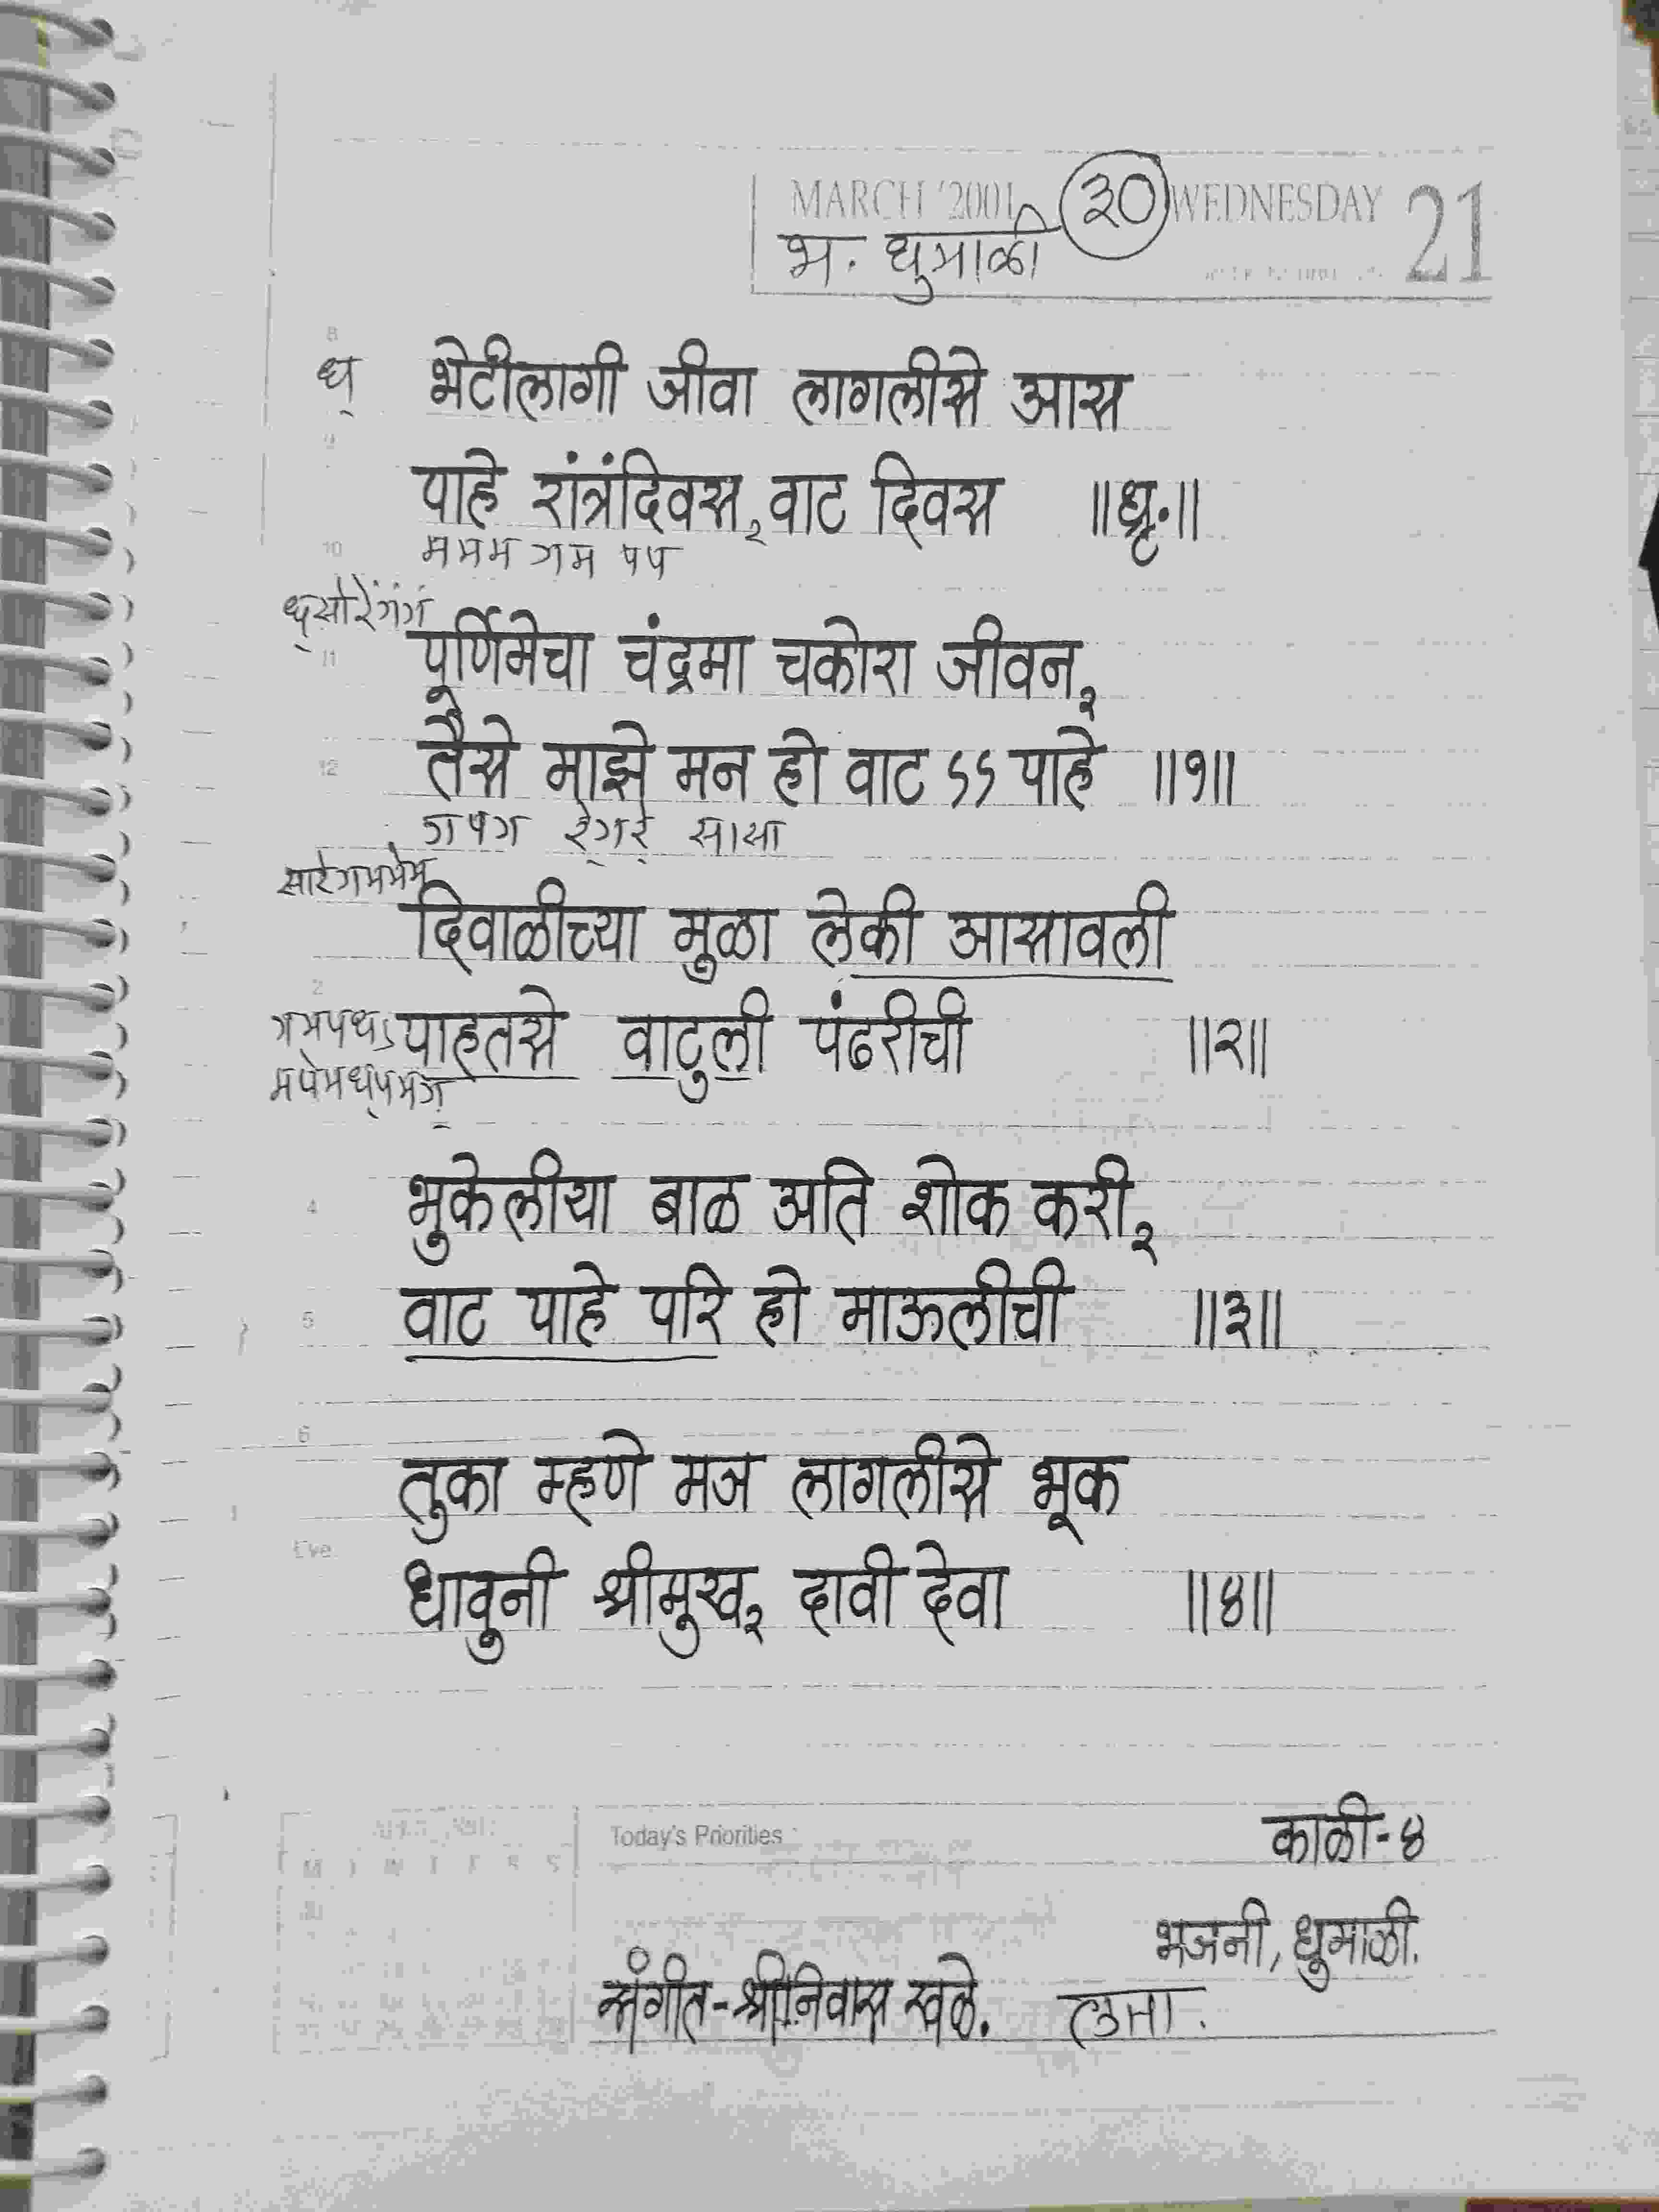 MARCH '2001 ३० WEDNESDAY 21
भ. धुमाळी
ध् भेटीलागी जीवा लागलीसे आस
पाहे रांत्रंदिवस,२ वाट दिवस ॥धृ.॥
ममम गम पप
पूर्णिमेचा चंद्रमा चकोरा जीवन,२
तैसे माझे मन हो वाट ऽऽ पाहे ॥१॥
गपग रे्गरे् सासा
दिवाळीच्या मुळा लेकी आसावली
गमपधऽ पाहतसे वाटुली पंढरीची ॥२॥
भुकेलीया बाळ अति शोक करी,२
वाट पाहे परि हो माऊलीची ॥३॥
तुका म्हणे मज लागलीसे भूक
धावुनी श्रीमुख,२ दावी देवा ॥४॥
काळी-४
Today's Priorities
भजनी, धुमाळी.
संगीत-श्रीनिवास खळे. लता.